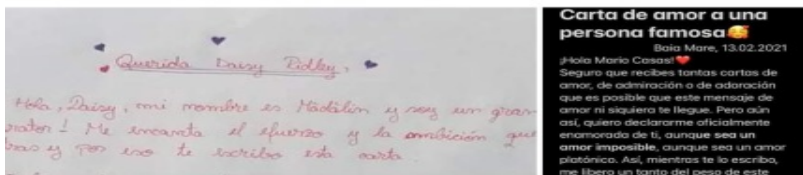 Querida Daisy Ridley,
Hola, Daisy, mi nombre es Mădălin y soy un gran
rator! Me encanta el efuerzo y la ambición que
ras y por eso te escribo esta carta.
Carta de amor a una
persona famosa🥰
Baia Mare, 13.02.2021
¡Hola Mario Casas!❤️
Seguro que recibes tantas cartas de
amor, de admiración o de adoración
que es posible que este mensaje de
amor ni siquiera te llegue. Pero aún
así, quiero declararme oficialmente
enamorada de ti, aunque sea un
amor imposible, aunque sea un amor
platónico. Así, mientras te lo escribo,
me libero un tanto del peso de este